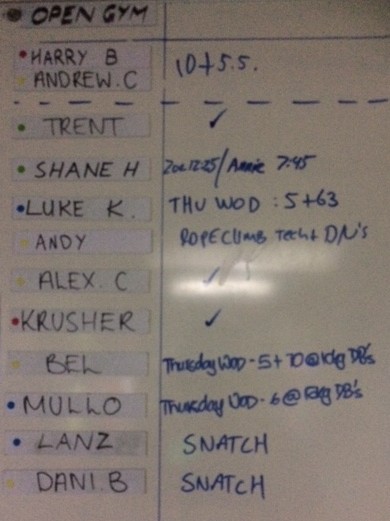 OPEN GYM
HARRY B
ANDREW.C
10+5.5.
TRENT ✓
SHANE H /Annie 7:45
LUKE K. THU WOD : 5+63
ANDY ROPECLIMB Tech+ DN's
ALEX. C ✓
KRUSHER ✓
BEL Thursday WOD - 5+70@10kg DB's
MULLO Thursday WOD - 6@ DB's
LANZ SNATCH
DANI.B SNATCH